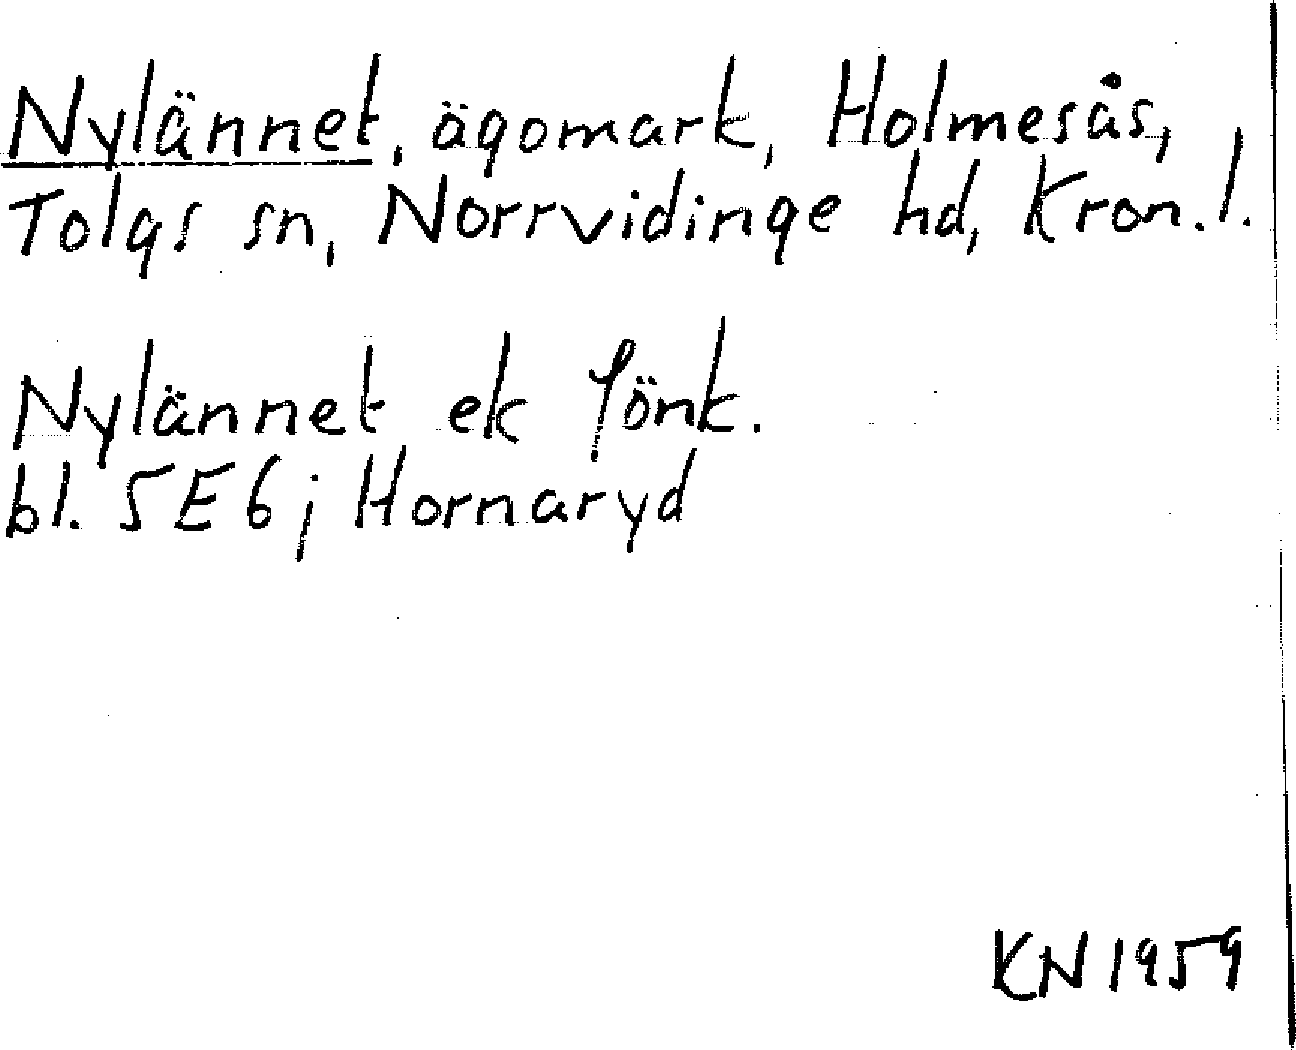 Nylännet, ägomark, Holmesås,
Tolgs sn, Norrvidinge hd, Kron. l.
Nylännet ek Jönk.
bl. 5E6j Hornaryd
KN 1959